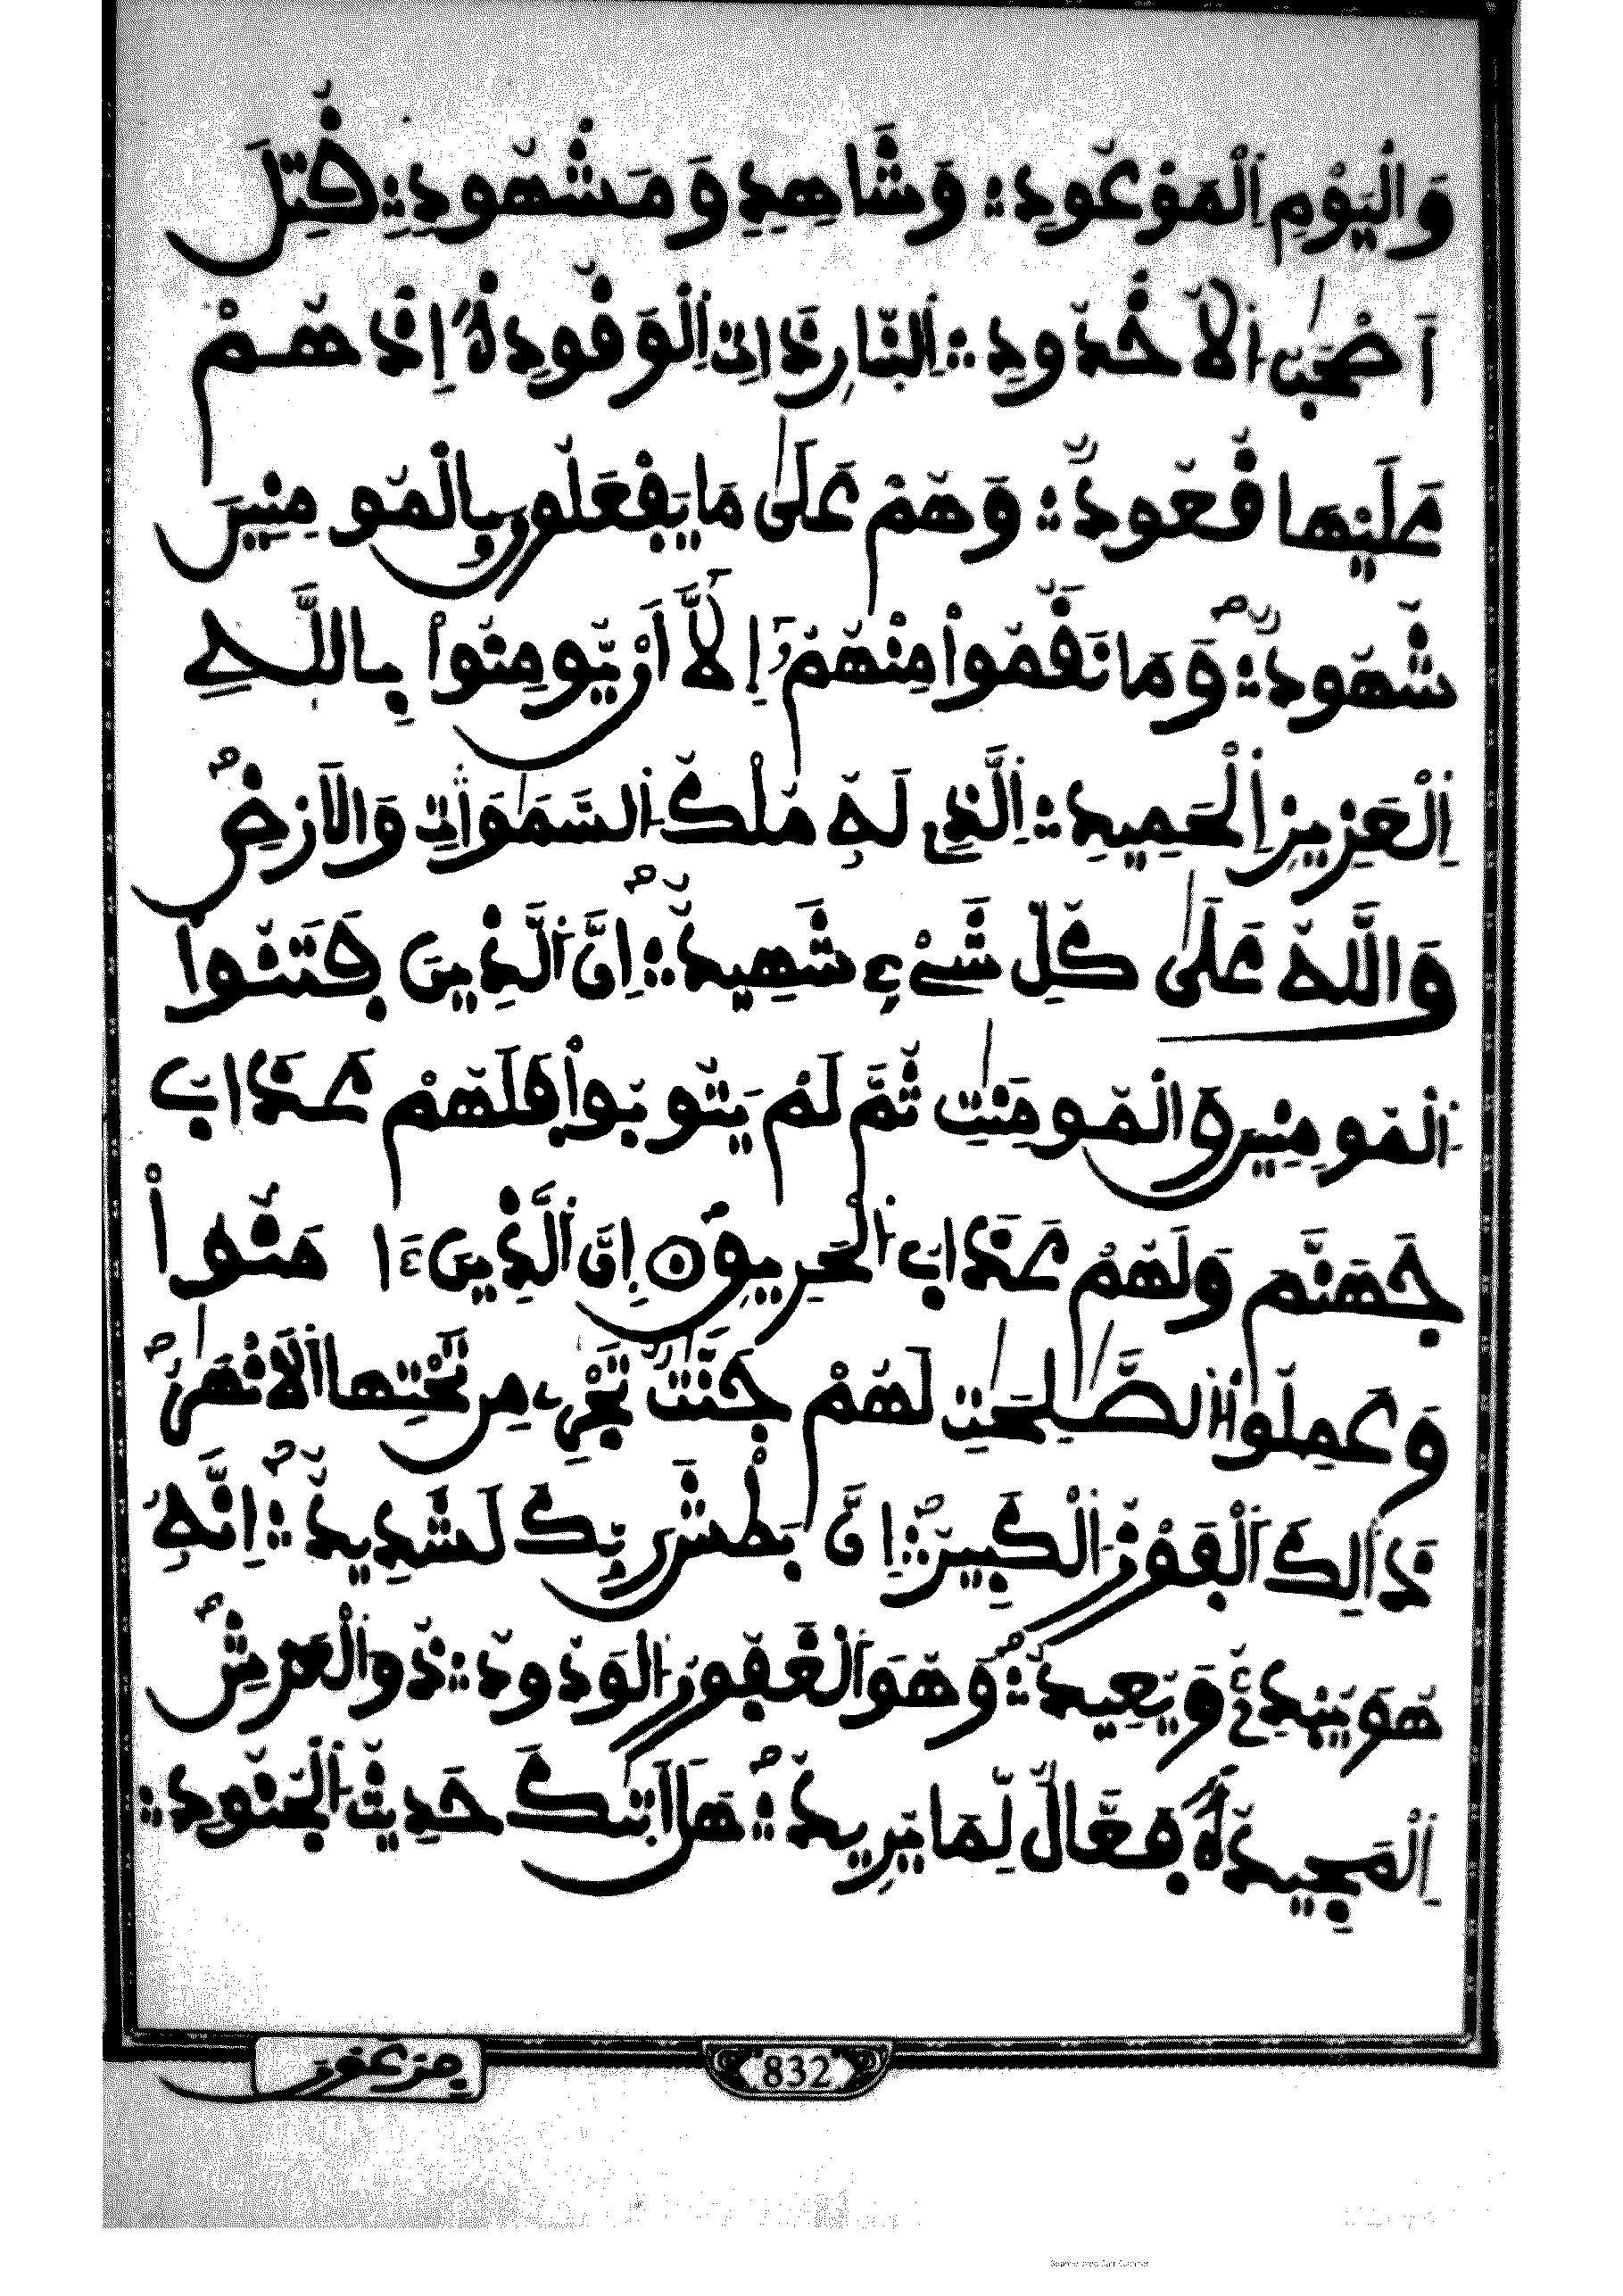 وَالْيَوْمِ اِ۬لْمَوْعُودِ ۝ وَشَاهِدٖ وَمَشْهُودٖ ۝ قُتِلَ
أَصْحَٰبُ اُ۬لُاخْدُودِ ۝ اِ۬لنّ۪ارِ ذَاتِ اِ۬لْوَقُودِ ۝ إِذْ هُمْ
عَلَيْهَا قُعُودٞ ۝ وَهُمْ عَلَىٰ مَا يَفْعَلُونَ بِالْمُومِنِينَ
شُهُودٞ ۝ وَمَا نَقَمُواْ مِنْهُمُۥٓ إِلَّآ أَنْ يُّومِنُواْ بِاللَّهِ
اِ۬لْعَزِيزِ اِ۬لْحَمِيدِ ۝ اِ۬لَّذِي لَهُۥ مُلْكُ اُ۬لسَّمَٰوَٰتِ وَالْأَرْضِ
وَاللَّهُ عَلَىٰ كُلِّ شَےْءٖ شَهِيدٌ ۝ اِنَّ اَ۬لَّذِينَ فَتَنُواْ
اُ۬لْمُومِنِينَ وَالْمُومِنَٰتِ ثُمَّ لَمْ يَتُوبُواْ فَلَهُمْ عَذَابُ
جَهَنَّمَ وَلَهُمْ عَذَابُ اُ۬لْحَرِيقِ ۝ إِنَّ اَ۬لَّذِينَ ءَامَنُواْ
وَعَمِلُواْ اُ۬لصَّٰلِحَٰتِ لَهُمْ جَنَّٰتٞ تَجْرِي مِن تَحْتِهَا اَ۬لَانْهَٰرُ
ذَٰلِكَ اَ۬لْفَوْزُ اُ۬لْكَبِيرُ ۝ إِنَّ بَطْشَ رَبِّكَ لَشَدِيدٌ ۝ اِنَّهُۥ
هُوَ يُبْدِئُ وَيُعِيدُ ۝ وَهُوَ اَ۬لْغَفُورُ اُ۬لْوَدُودُ ۝ ذُو اُ۬لْعَرْشِ
اِ۬لْمَجِيدُ ۝ فَعَّالٞ لِّمَا يُرِيدُ ۝ هَلَ اَت۪يٰكَ حَدِيثُ اُ۬لْجُنُودِ ۝
832